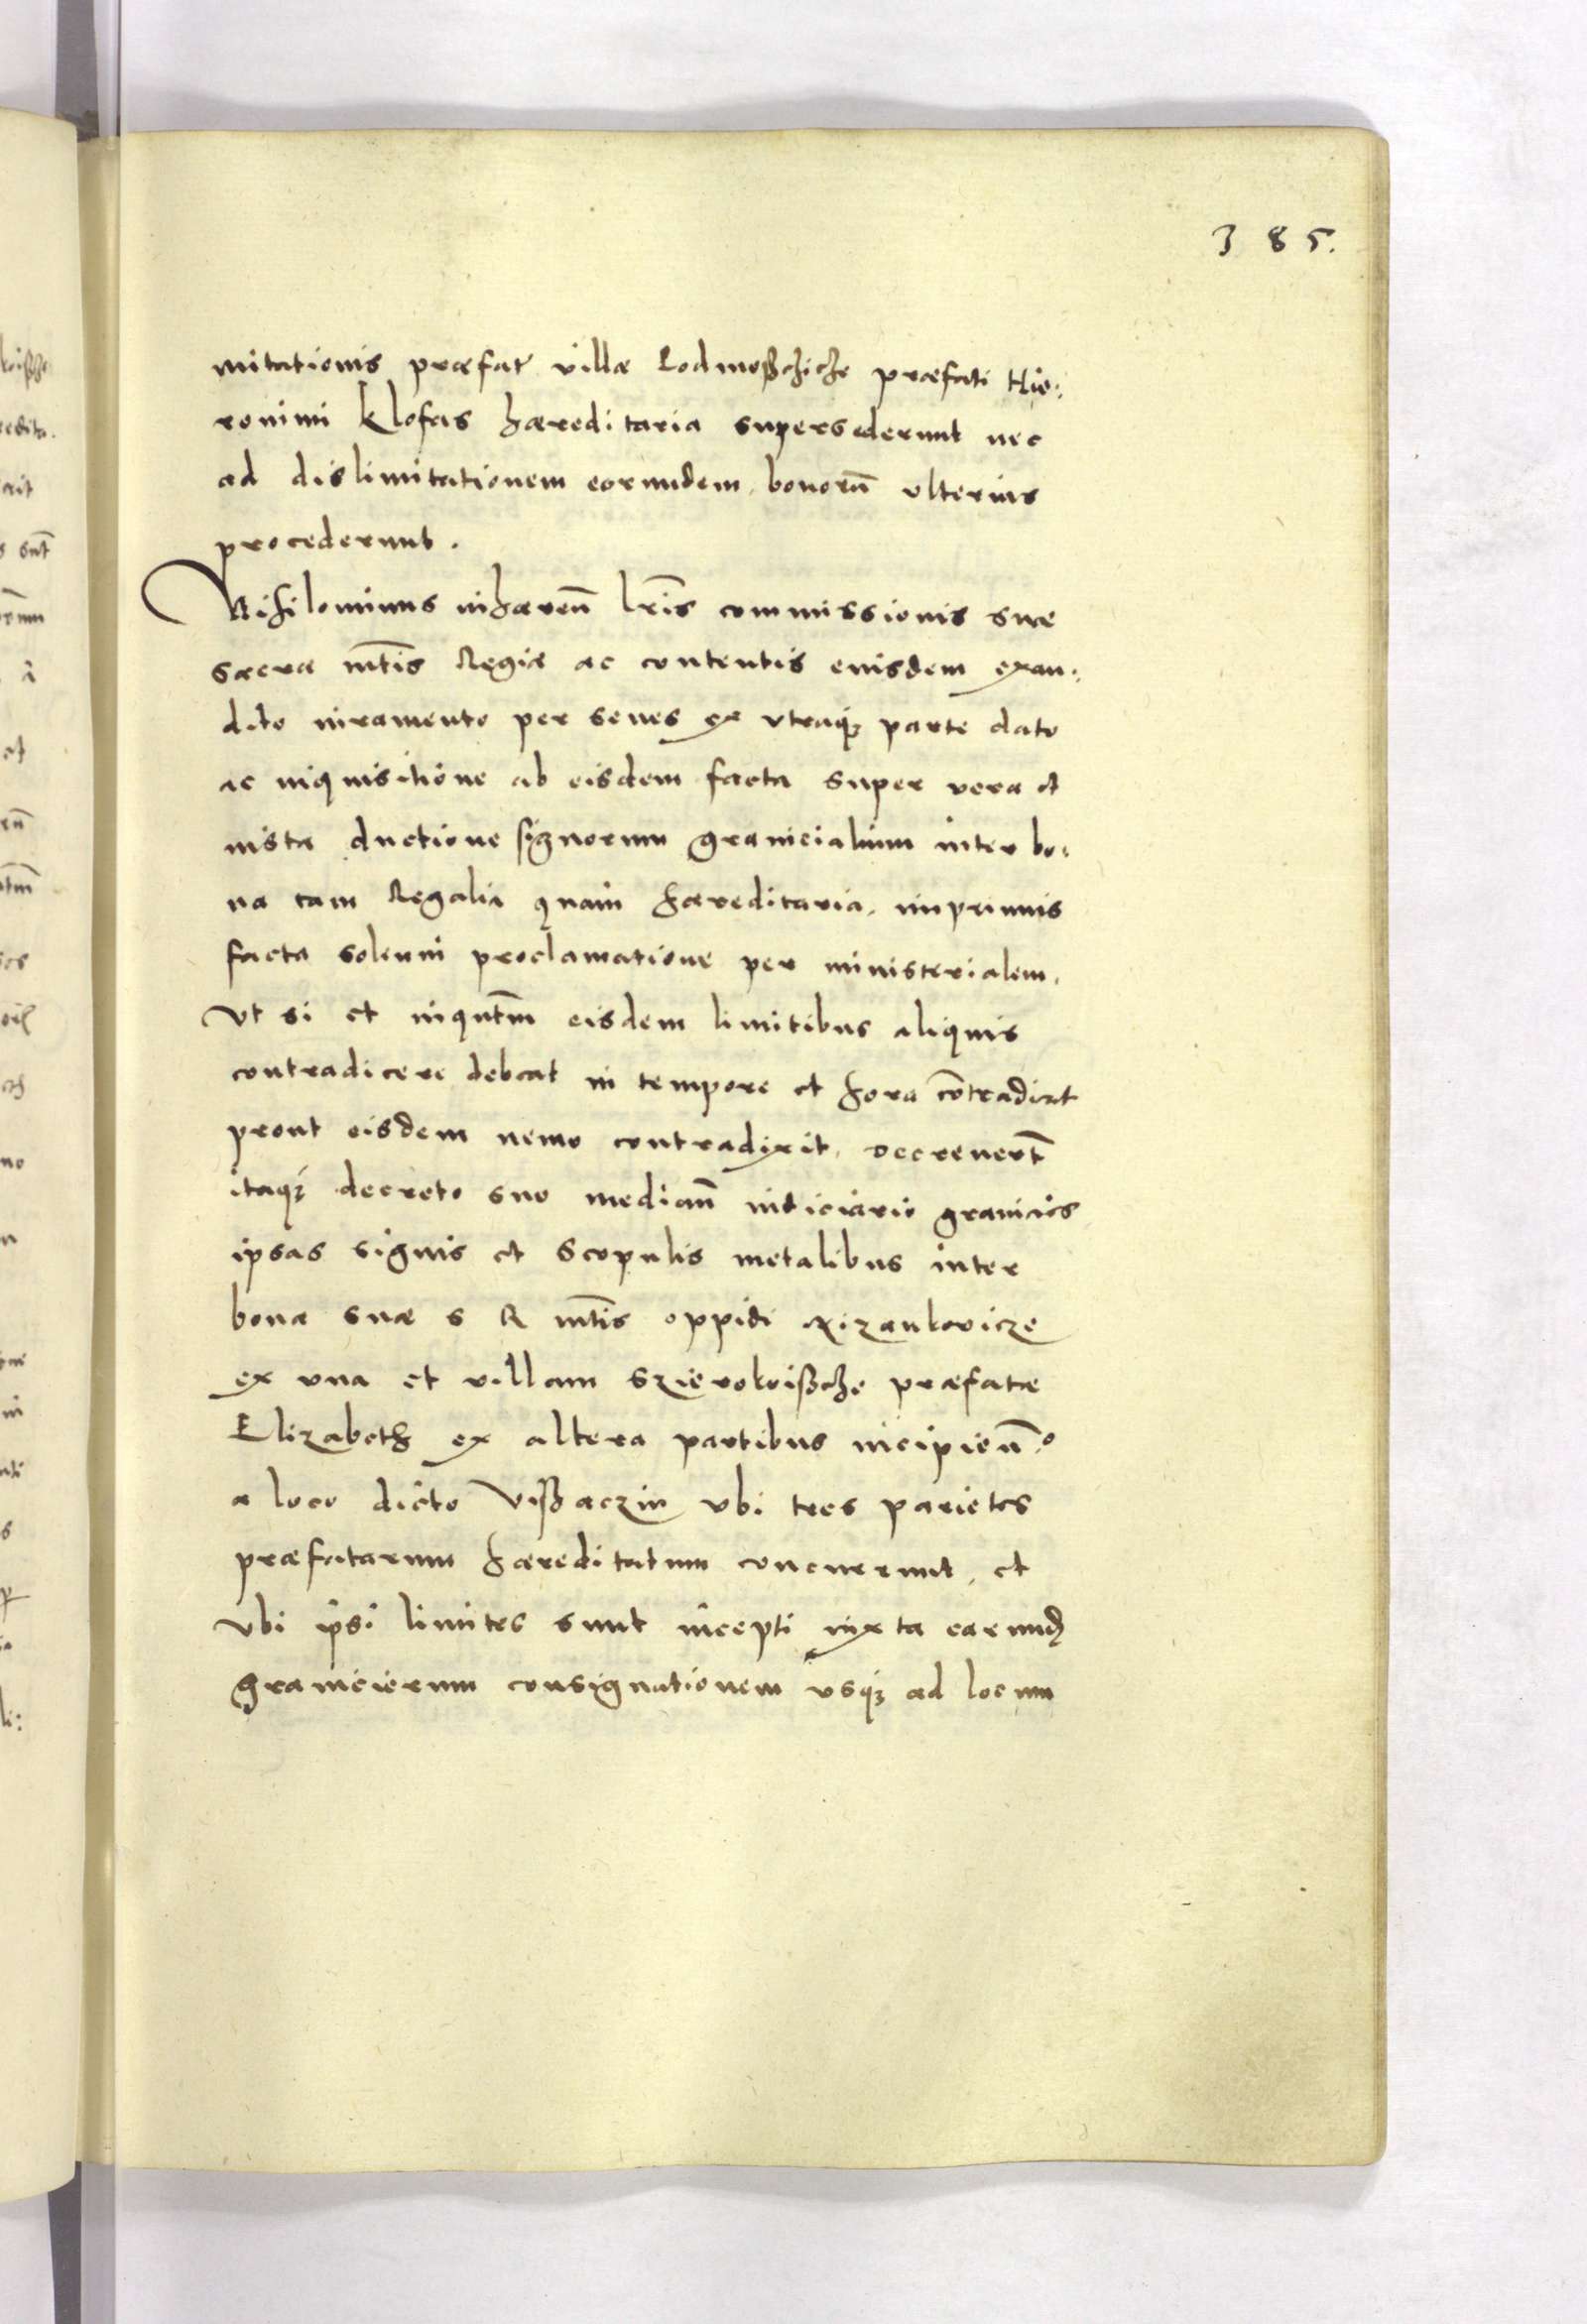 385.
mitationis præfat villæ Lodmoßchiche præfati Hie:
ronimi Klofas hæreditaria supersederunt nec
ad dislimitationem eorundem bonorũ vlterius
procederunt.
Nihilominus inhæreñ lr̃is commissionis suæ
sacræ mt̃is Regiæ ac contentis eiusdem exau:
dito iuramento per senes ex vtraqꝫ parte dato
ac inquisitione ab eisdem facta super vera et
iusta ductione signorum granicialium inter bo:
na tam Regalia quam hæreditaria, imprimis
facta solenni proclamatione per ministerialem.
Vt si et inqnt̃m eisdem limitibus aliquis
contradicere debeat in tempore et hora cõtradicat
prout eisdem nemo contradixit, Decreuerũt
itaqꝫ decreto suo mediañ iudiciario granicies
ipsas signis et Scopulis metalibus inter
bona suæ S R mt̃is oppidi Xizankovicze
ex vna et villam Szierokoißche præfatæ
Elizabeth ex altera partibus incipieñ:
a loco dicto Vißaczin vbi tres parietes
præfatarum hæreditatum concurrunt, et
vbi ipsi limites sunt incepti iuxta earund
granicierum consignationem vsqꝫ ad locum